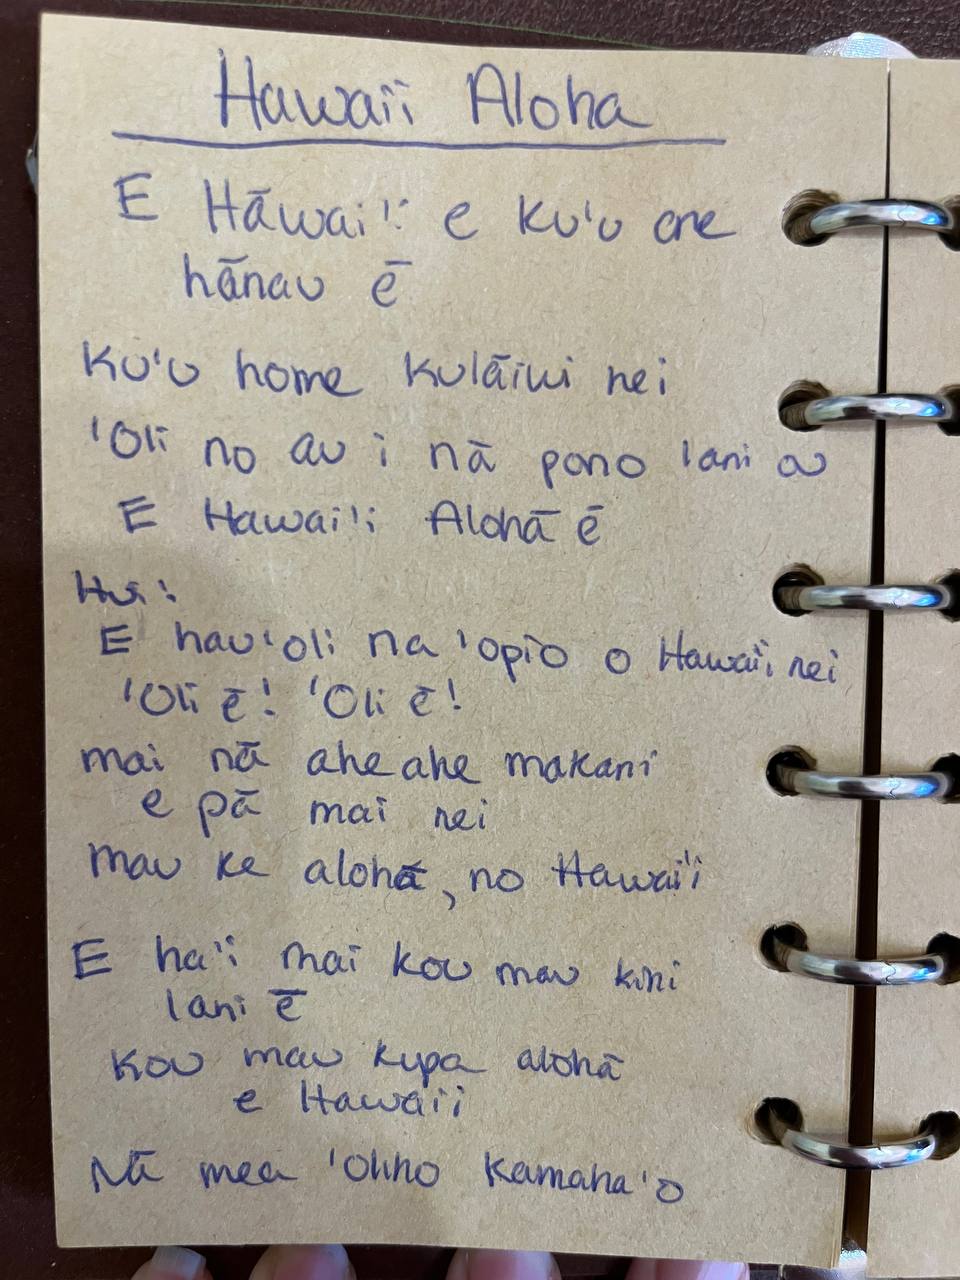 Hawai'i Aloha
E Hāwai'i e Ku'u one
hānau ē
Ku'u home kulāiwi nei
'Oli no au i nā pono lani ou
E Hawai'i Alohā ē
Hui:
E hau'oli na 'opio o Hawai'i nei
'Oli ē! 'Oli ē!
mai nā aheahe makani
e pā mai nei
mau ke alohā, no Hawai'i
E ha'i mai kou mau kini
lani ē
Kou mau kupa alohā
e Hawai'i
Nā mea 'ohno Kamaha'o